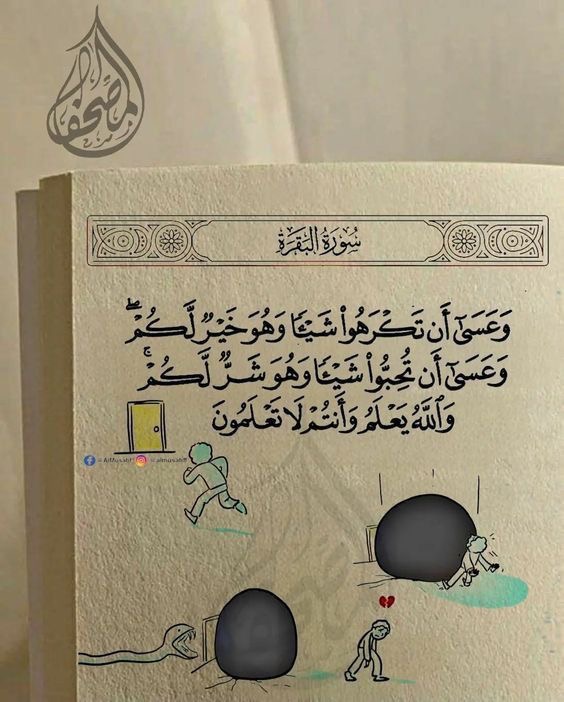 المصحف
سُورَةُ البَقَرَةِ
وَعَسَىٰٓ أَن تَكْرَهُوا۟ شَيْـًٔا وَهُوَ خَيْرٌ لَّكُمْ ۖ
وَعَسَىٰٓ أَن تُحِبُّوا۟ شَيْـًٔا وَهُوَ شَرٌّ لَّكُمْ ۚ
وَٱللَّهُ يَعْلَمُ وَأَنتُمْ لَا تَعْلَمُونَ